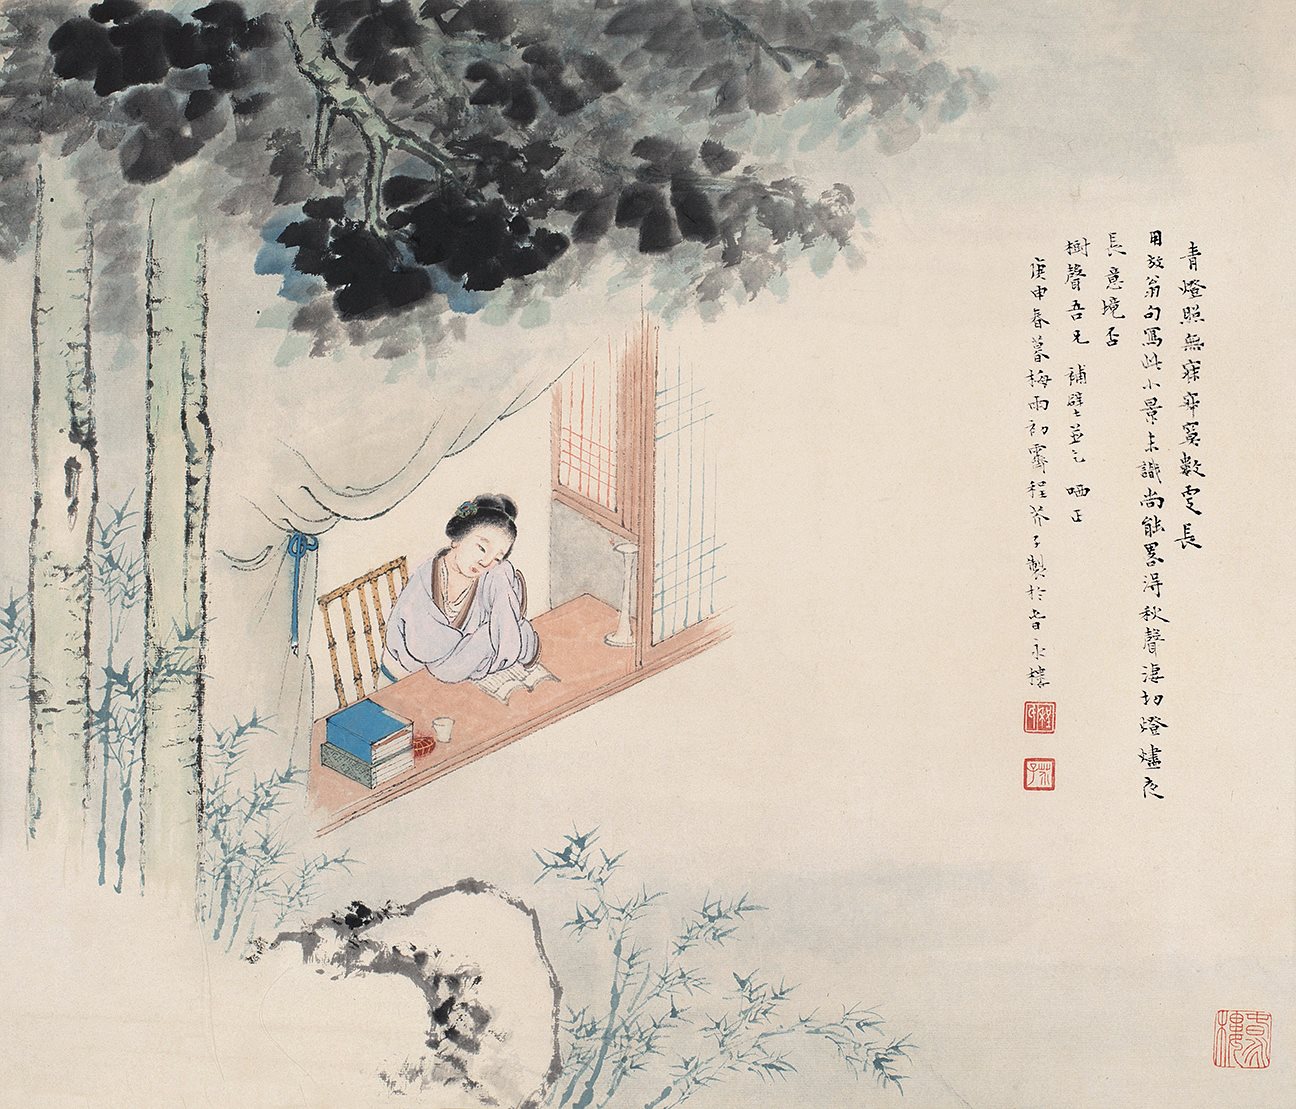 青燈照無寐寂寞數更長
用放翁句寫此小景未識尚能畧得秋聲淒切燈燼夜
長意境否
樹聲吾兄 補壁並乞 哂正
庚申春暮梅雨初霽程芥子製於永樓
芥子